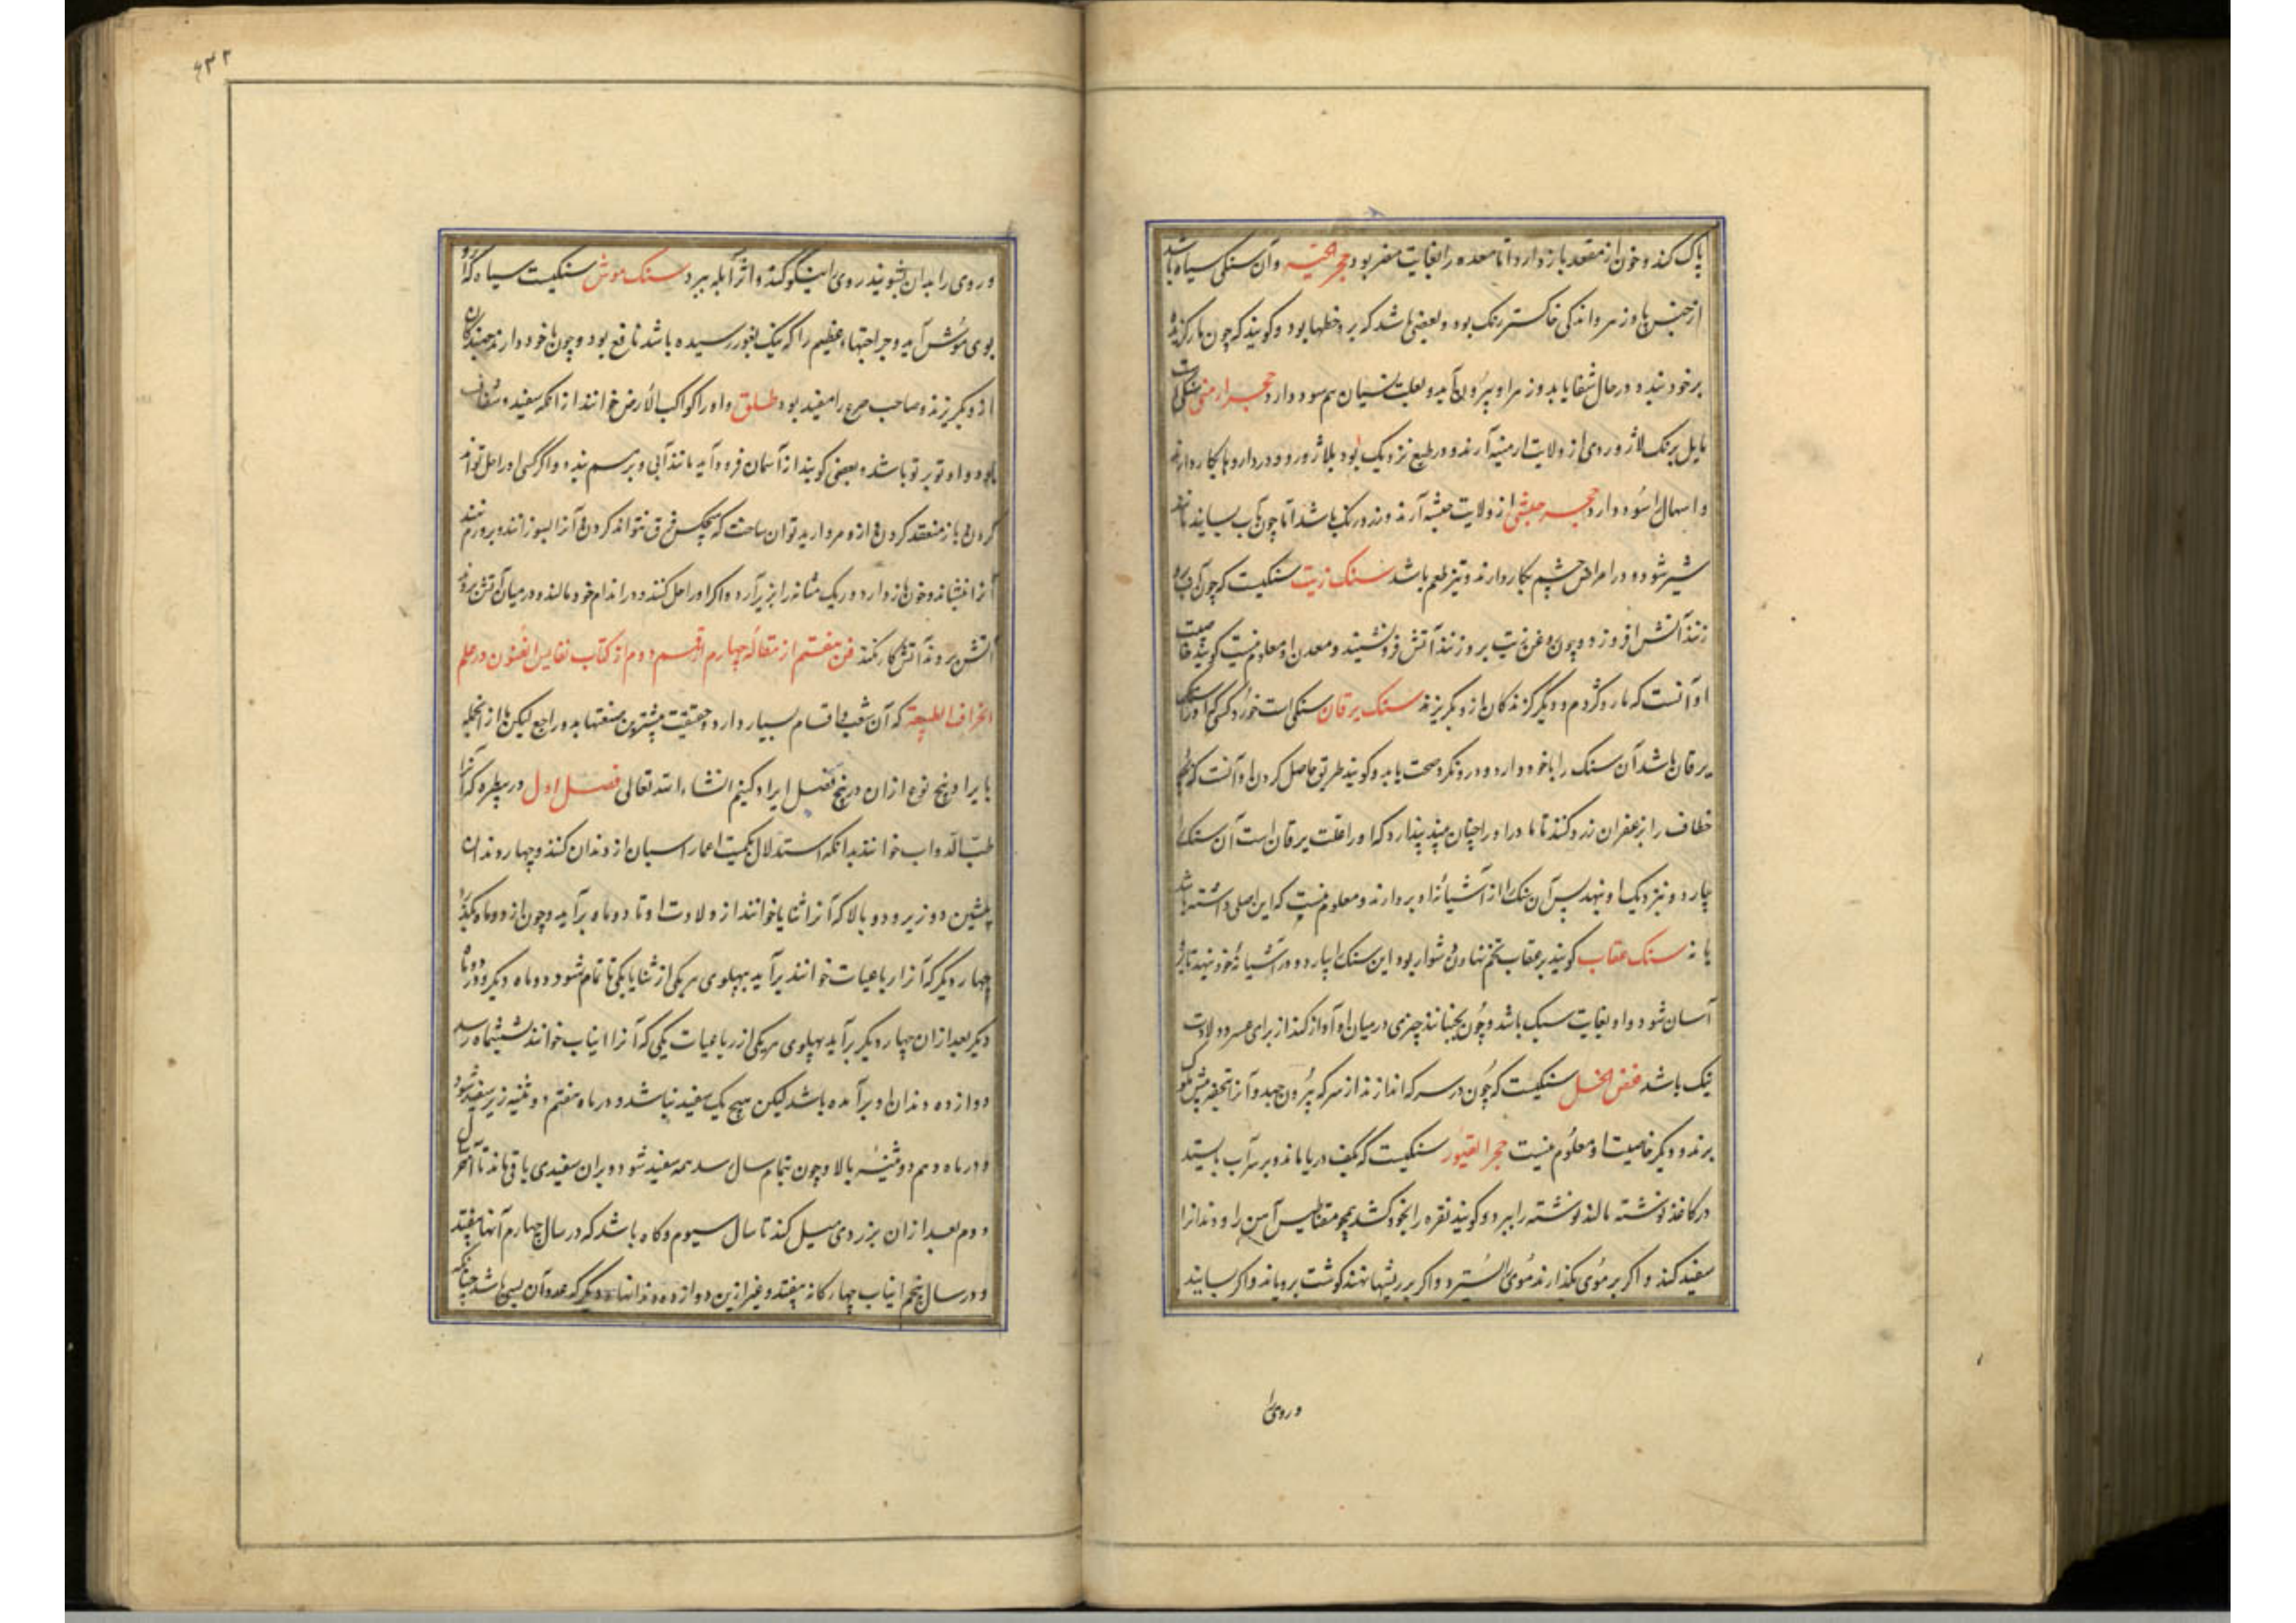 پاک کند و خون از مقعد باز دارد و اما معده را بغایت مضر بود حجر الحیه و آن سنکی سیاه باشد
از جنس پاوزهر و اندکی خاکستر رنک بود و بعضی باشد که برو خطها بود و کویند که چون مار کزیده
بر خود بندد در حال شفا یابد و زهر او بیرون آید و بعلت نسیان هم سود دارد حجر ارمنی سنکی است
مایل برنک لاژوردی از ولایت ارمنیه آرند و در طبع نزدیک بود بلاژورد و در داروها بکار دارند
و اسهال سودا آرد حجر حبشی از ولایت حبشه آرند و زرد رنک باشد اما چون بآب بسایند مانند
شیر شود و در امراض چشم بکار دارند و تیز طعم باشد سنک زیت سنکیست که چون آب برو
زنند آتش افروزد و چون روغن زیت برو زنند آتش فرو نشیند و معدن او معلوم نیست کویند خاصیت
او آنست که مار و کژدم و دیکر کزندکان ازو بکریزند سنک یرقان سنکی است خورد کسی که او را
یرقان باشد آن سنک را با خود دارد و درو نکرد صحت یابد و کویند طریق حاصل کردن او آنست که بچه
خطاف را بزعفران زرد کنند تا مادر او را چنان بیند پندارد که او را علت یرقان است آن سنک را
بیارد و بنزدیک او نهد پس آن سنک را از آشیانه او بردارند و معلوم نیست که این اصلی داشته باشد
یا نه سنک عقاب کویند بر عقاب تخم نهادن دشوار بود این سنک را بیارد و در آشیانه خود نهد تا برو
آسان شود و او بغایت سبک باشد و چون بجنبانند چیزی در میان او آواز کند از برای عسر ولادت
نیک باشد مبغض الخل سنکیست که چون در سرکه اندازند از سرکه بیرون جهد و آنرا بتحفه پیش ملوک
برند و دیکر خاصیت او معلوم نیست حجر القیشور سنکیست که بکف دریا ماند و بر سر آب بایستد
در کاغذ نوشته مالند نوشته را ببرد و کویند نقره را بخود کشد همچو مقناطیس آهن را و دندانرا
سفید کند و اکر بر موی بکذارند موی بسترد و اکر بر ریشها نهند کوشت برویاند و اکر بسایند
و روی را
۴۳۲
و روی را بدان بشویند روی را نیکو کند و اثر آبله ببرد سنک موش سنکیست سیاه که ازو
بوی موش آید و جراحتهاء عظیم را که نیک بغور رسیده باشد نافع بود و چون با خود دارند جنبندکان
ازو بکریزند و صاحب صرع را مفید بود طلق و او را کواکب الارض خوانند از آنکه سفید و شفاف
بود و او تو بر تو باشد و بعضی کویند از آسمان فرود آید مانند آبی و بر هم بندد و اکر کسی او را حل تواند
کردن و باز منعقد کردن ازو مروارید توان ساخت که هیچکس فرق نتواند کردن و آنرا بسوزانند و ورم
آنرا بنشاند و خون باز دارد و ریک مثانه را بزیر آرد و اکر او را حل کنند و در اندام خود مالند و در میان آتش روند
آتش برو کار نکند فن هفتم از مقاله چهارم از قسم دوم از کتاب نفایس الفنون در علم
اطراف الطبیعة که آن شعب و اقسام بسیار دارد و حقیقت بیشترین صنعتها بدو راجع لیکن ما از آنجمله
بایراد پنج نوع از آن در پنج فصل ایراد کنیم انشاء الله تعالی فصل اول در بیطره که آنرا
طب الدواب خوانند بدانکه استدلال بکمیت اعمار اسبان از دندان کنند و چهار دندان
پیشین دو زیر و دو بالا که آنرا ثنایا خوانند از ولادت او تا دو ماه برآید و چون از دو ماه بکذرد
چهار دیکر که آنرا رباعیات خوانند برآید بپهلوی هر یکی از ثنایا یکی تا تمام شود دو ماه دیکر و دو ماه
دیکر بعد از آن چهار دیکر برآید پهلوی هر یکی از رباعیات یکی که آنرا انیاب خوانند ششماه رسد
دوازده دندان او برآمده باشد لیکن هیچ یک سفید نباشد و در ماه هفتم دو ثنیه زیر سفید شود
و در ماه دهم دو ثنیه بالا و چون بتمام سال رسد همه سفید شود و بران سفیدی باقی ماند تا آخر سال
دوم بعد از آن بزردی میل کند تا سال سیوم و کاه باشد که در سال چهارم آنها بیفتد
و در سال پنجم انیاب چهار کانه بیفتد و غیر ازین دوازده دندانها دیکر که عدد آن بسی باشد چنانکه